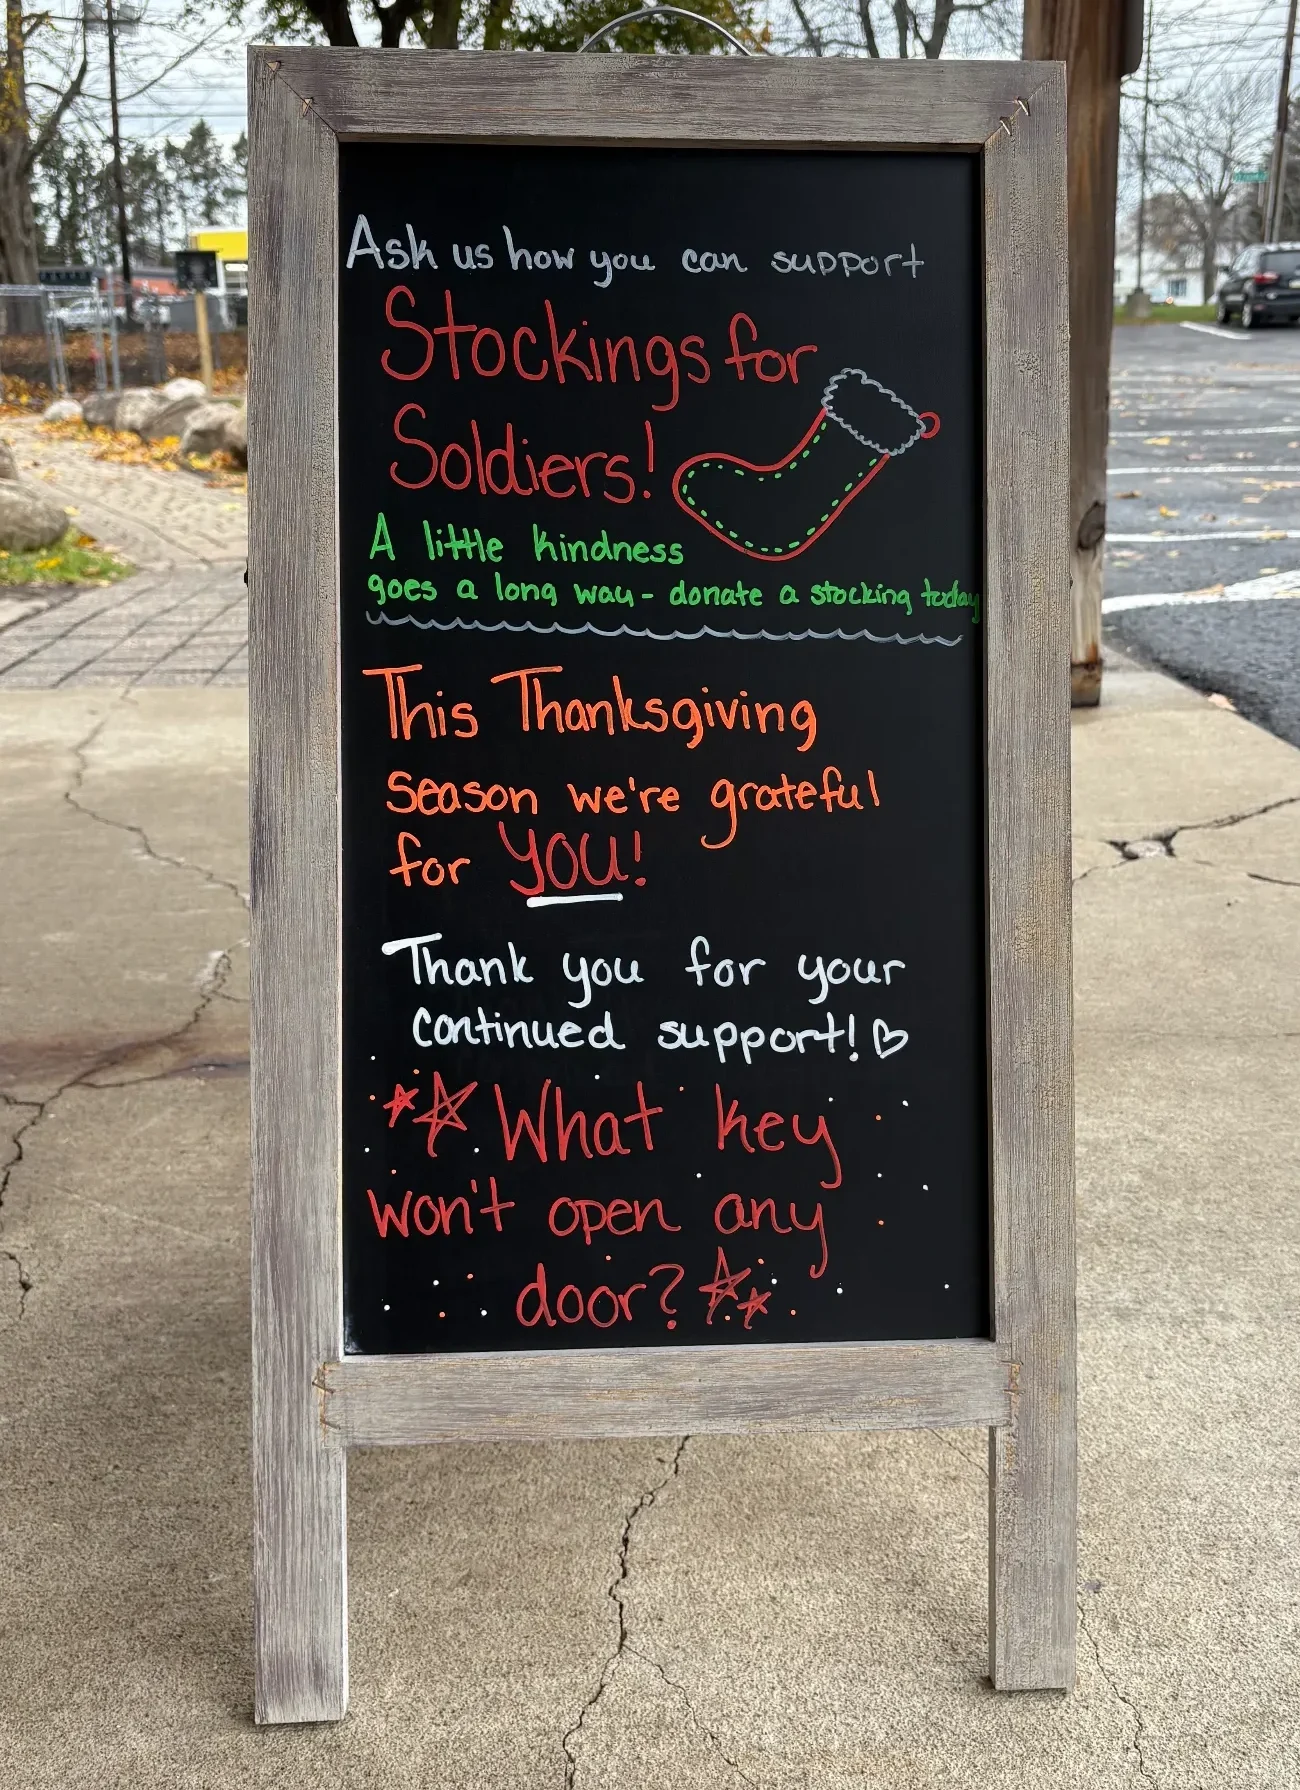 Ask us how you can support
Stockings for
Soldiers!
A little kindness
goes a long way - donate a stocking today
This Thanksgiving
season we're grateful
for YOU!
Thank you for your
continued support!
What key
won't open any
door?